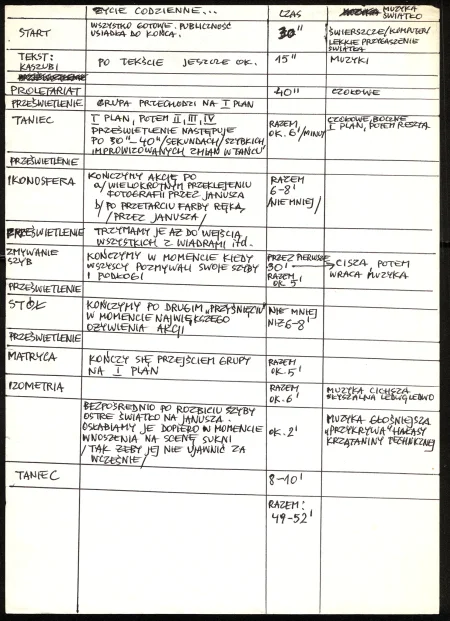 ŻYCIE CODZIENNE... CZAS MUZYKA
ŚWIATŁO
START WSZYSTKO GOTOWE. PUBLICZNOŚĆ 30" ŚWIERSZCZE/KOMPUTER/
USIADŁA DO KOŃCA. LEKKIE PRZYGASZENIE
ŚWIATŁA
TEKST: PO TEKŚCIE JESZCZE OK. 15" MUZYKI
KASZUBI
PROLETARIAT 40" CZOŁOWE
PRZEŚWIETLENIE GRUPA PRZECHODZI NA I PLAN
TANIEC I PLAN, POTEM II, III, IV RAZEM CZOŁOWE, BOCZNE
PRZEŚWIETLENIE NASTĘPUJE OK. 6'/MINUT I PLAN, POTEM RESZTA
PO 30"-40"/SEKUNDACH/SZYBKICH,
IMPROWIZOWANYCH ZMIAN W TAŃCU
PRZEŚWIETLENIE
IKONOSFERA KOŃCZYMY AKCJĘ PO RAZEM
a/ WIELOKROTNYM PRZEKLEJENIU 6-8'
FOTOGRAFII PRZEZ JANUSZA /NIE MNIEJ/
b/ PO PRZETARCIU FARBY RĘKĄ
/PRZEZ JANUSZA/
PRZEŚWIETLENIE TRZYMAMY JE AŻ DO WEJŚCIA
WSZYSTKICH Z WIADRAMI itd.
ZMYWANIE KOŃCZYMY W MOMENCIE KIEDY PRZEZ PIERWSZE CISZA, POTEM
SZYB WSZYSCY POZMYWALI SWOJE SZYBY RAZEM WRACA MUZYKA
I PODŁOGI OK. 5'
PRZEŚWIETLENIE
STÓŁ KOŃCZYMY PO DRUGIM „PRZYŚNIĘCIU" NIE MNIEJ
W MOMENCIE NAJWIĘKSZEGO NIŻ 6-8'
OŻYWIENIA AKCJI
PRZEŚWIETLENIE
MATRYCA KOŃCZY SIĘ PRZEJŚCIEM GRUPY RAZEM
NA I PLAN OK. 5'
IZOMETRIA RAZEM MUZYKA CICHSZA
OK. 6' SŁYSZALNA LEDWO LEDWO
BEZPOŚREDNIO PO ROZBICIU SZYBY
OSTRE ŚWIATŁO NA JANUSZA. MUZYKA GŁOŚNIEJSZA
OSŁABIAMY JE DOPIERO W MOMENCIE OK. 2' „PRZYKRYWA" HAŁASY
WNOSZENIA NA SCENĘ SUKNI KRZĄTANINY TECHNICZNEJ
/TAK ŻEBY JEJ NIE UJAWNIĆ ZA
WCZEŚNIE/
TANIEC 8-10'
RAZEM:
49-52'